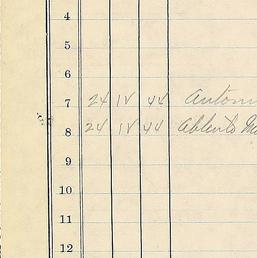 4
5
6
7 24 IV 44
8 24 IV 44
9
10
11
12